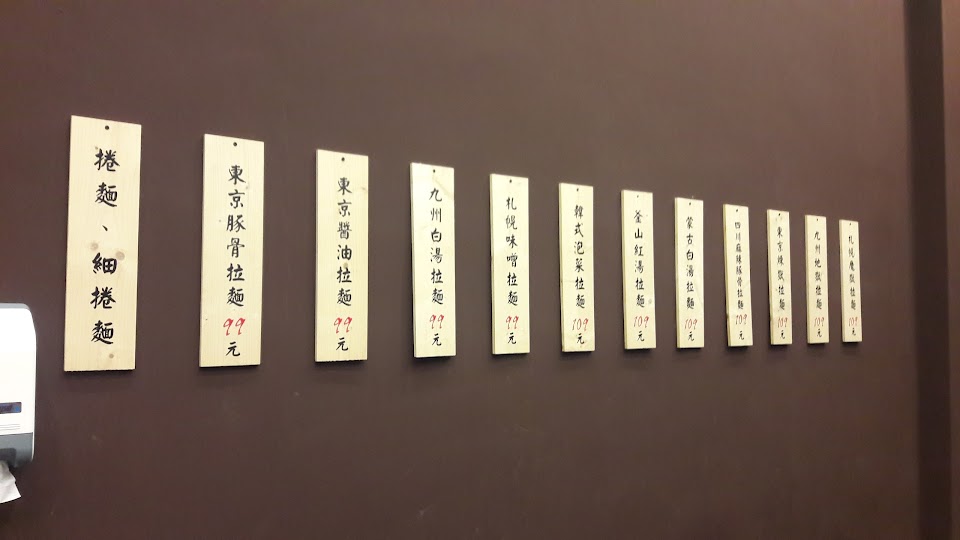 捲麵、細捲麵
東京豚骨拉麵 99元
東京醬油拉麵 99元
九州白湯拉麵 99元
札幌味噌拉麵 99元
韓式泡菜拉麵 109元
釜山紅湯拉麵 109元
蒙古白湯拉麵 109元
四川麻辣豚骨拉麵 109元
東京煉獄拉麵 109元
九州地獄拉麵 109元
札幌魔獄拉麵 109元